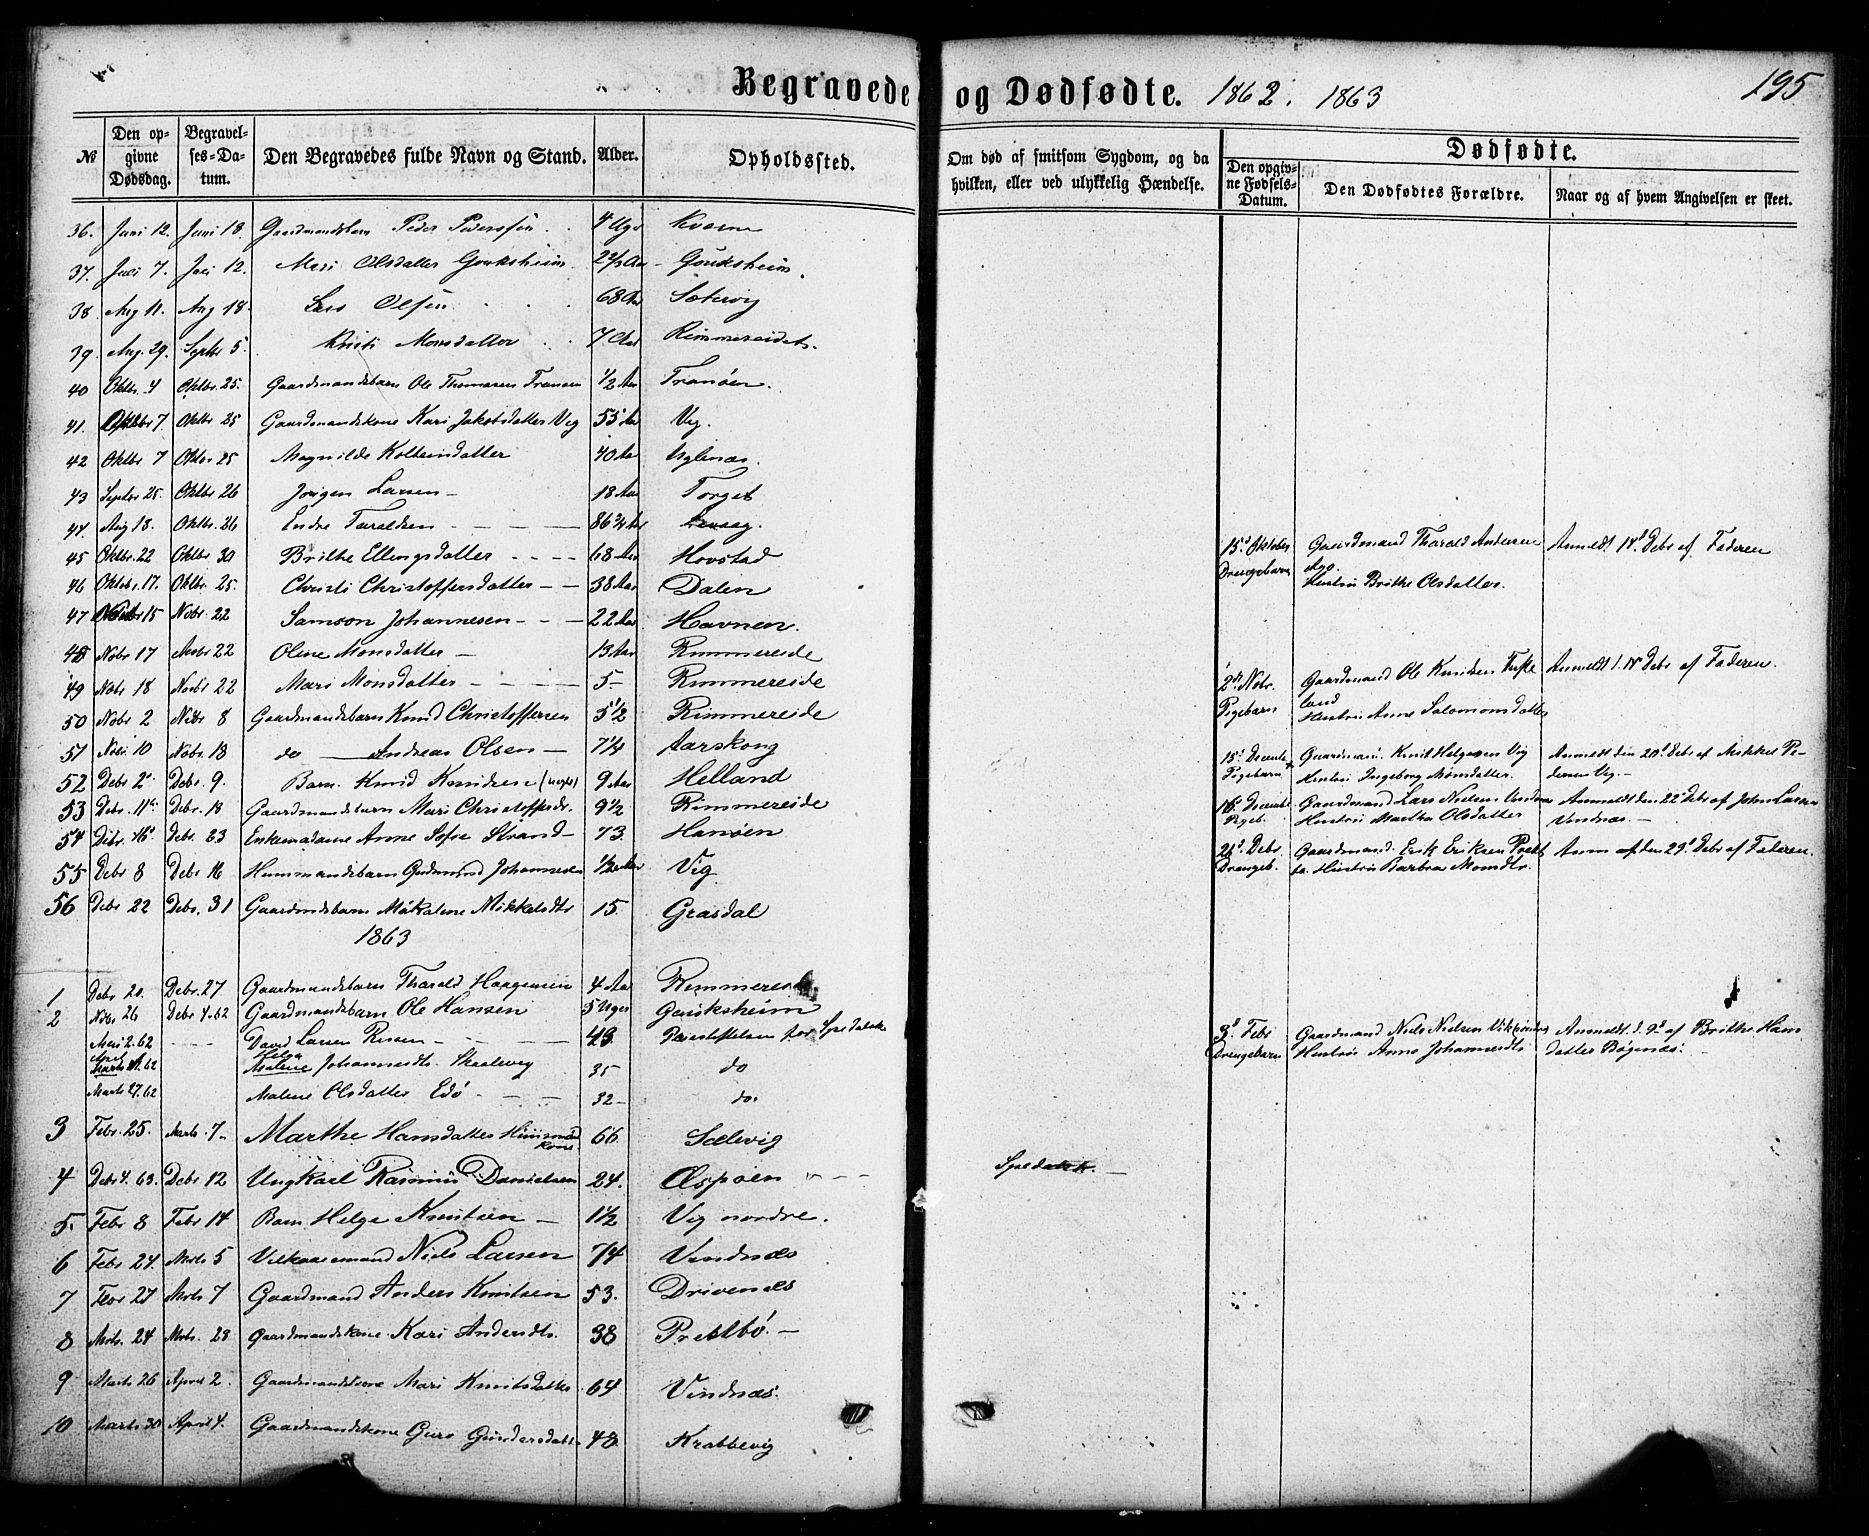 Begravede og Dødfødte. 1862. 1863
195
№
Den opgivne Dødsdag.
Begravelses-Datum.
Den Begravedes fulde Navn og Stand.
Alder.
Opholdssted.
Om død af smitsom Sygdom, og da hvilken, eller ved ulykkelig Hændelse.
Dødfødte.
Den opgivne Fødsels-Datum.
Den Dødfødtes Forældre.
Naar og af hvem Angivelsen er skeet.
36. Juni 12. Juni 18. Gaardmandsbarn Peder Pedersen 4 Ugr
37. Juli 7. Juli 12. Mari Olsdatter Gouksheim 2 2/3 Aar Gouksheim.
38. Aug 11. Aug 18. Lars Olsen 68 Aar Sætervig
39. Aug. 29. Septbr 5. Kristi Monsdatter 7 Aar Rimmereidet.
40 Oktbr. 4 Oktbr. 25. Gaardmandsbarn Ole Thomasen Tranøen 1/2 Aar Tranøen.
41. Oktbr 7 Oktbr 25 Gaardmandskone Kari Jakobsdatter Vig 55 Aar Vig.
42 Oktbr 7 Oktbr 25 Magnilde Kolbeinsdatter 40 Aar Uglenæs.
43 Septbr 25. Oktbr 26 Jørgen Larsen - 18 Aar Torget
44. Aug 18. Oktbr. 26 Endre Taraldsen - - - 86 3/4 Aar
45 Oktbr. 22 Oktbr 30 Brithe Ellingsdatter - - - - 68 Aar Hovstad
46 Oktbr. 17. Oktbr. 25. Christi Christoffersdatter - - 38 Aar Dalen
47 Nobr 15 Nobr. 22 Samson Johannesen - - - 22 Aar Havnen.
48 Nobr 17 Nobr 22 Oline Monsdatter - 13 Aar Rimmereide
49 Nobr 18 Nobr 22 Mari Monsdatter - - - - 5- Rimmereide
50 Nobr 2 Nobr 8 Gaardmandsbarn Knud Christoffersen 5 1/2 Rimmereide
51 Nobr 10 Nobr. 18 do - Andreas Olsen - 7 1/4 Aarskoug
52 Debr 2 Debr. 9. Barn Knud Knudsen 9 Aar Helland
53 Debr. 11 Debr. 18 Gaardmandsbarn Mari Christoffersdt. 9 1/2 Rimmereide
54 Debr. 16 Debr. 23 Enkemadame Anne Sofie Strand- 73. Hanøen
55 Debr 8 Debr 16 Husmandsbarn Gudmund Johannesen Vig
56 Debr 22 Debr. 31 Gaardmdsbarn Mikaline Mikkelsdtr 15. Grasdal
1863
1 Debr 20. Debr. 27 Gaardmandsbarn Tharald Haagensen 4 Aar Rimmereide
2 Nobr 26 Debr 4. 62 Gaardmandsbarn Ole Hansen 5 Uger Gouksheim
Mai 2. 62 - - - David Larsen - - - 43. Pleiestiftelsen for Spedalske
April 1. 62 Helga Johannesdt. Skaalevig 35 do
Marts 27. 62 Malene Olsdatter Edø - - - 32- do.
3 Febr. 25. Marts. 7- Marthe Hansdatter Husmandkone 66. Sælevig
4 Debr 4. 63. Debr 12 Ungkarl Rasmus Danielsen 24. Æspøen - - -
5. Febr 8 Febr 14 Barn Helge Knutsen - 1 1/2 Vig nordre.
6 Febr 24. Mrts 5 Vilkaarsmand Niels Larsen 74 Vindnæs
7 Febr 27 Mrts 7 Gaardmand Anders Knutsen 53. Drivenæs
8 Mrts. 24 Mrts. 28 Gaardmandskone Kari Andersdtr. 38 Prestbø. -
9 Marts 26 April 2. Gaardmandskone Mari Knutsdatter 64 Vindnæs.
10 Marts 30 April 4. Gaardmandskone Guro Gundersdatt. 48 Krabbevig
Spedalsk. -
15. Oktober Gaardmand Tharald Andersen Anmeldt 14. Debr af Faderen
Drengebarn
Hustru Brithe Olsdatter.
2 Nobr. Gaardmand Ole Knudsen Tufte Anmeldt d. 14 Debr af Faderen.
Pigebarn land
Hustru Anne Salomonsdatter
15. Decembr Gaardmand. Knut Helgesen Vig Anmeldt den 20. Debr af Mikkel Pe-
Pigebarn Hustru Ingeborg Monsdatter. dersen Vig. -
16. Decembr Gaardmand Lars Nielsen Vindnæs Anmeldt den 22 Debr af John Larsen
Pigeb. Hustru Martha Olsdatter Vindnæs. -
21. Debr. Gaardmand. Erik Eriksen Prest Anm af den 29. Debr af Faderen.
Drengeb. bø. Hustru Barbra Monsdtr.
3. Febr Gaardmand Niels Nielsen Anmeldt d. 9. af Brithe Hans
Drengebarn Hustru Anna Johannesdtr datter Bøgenæs.